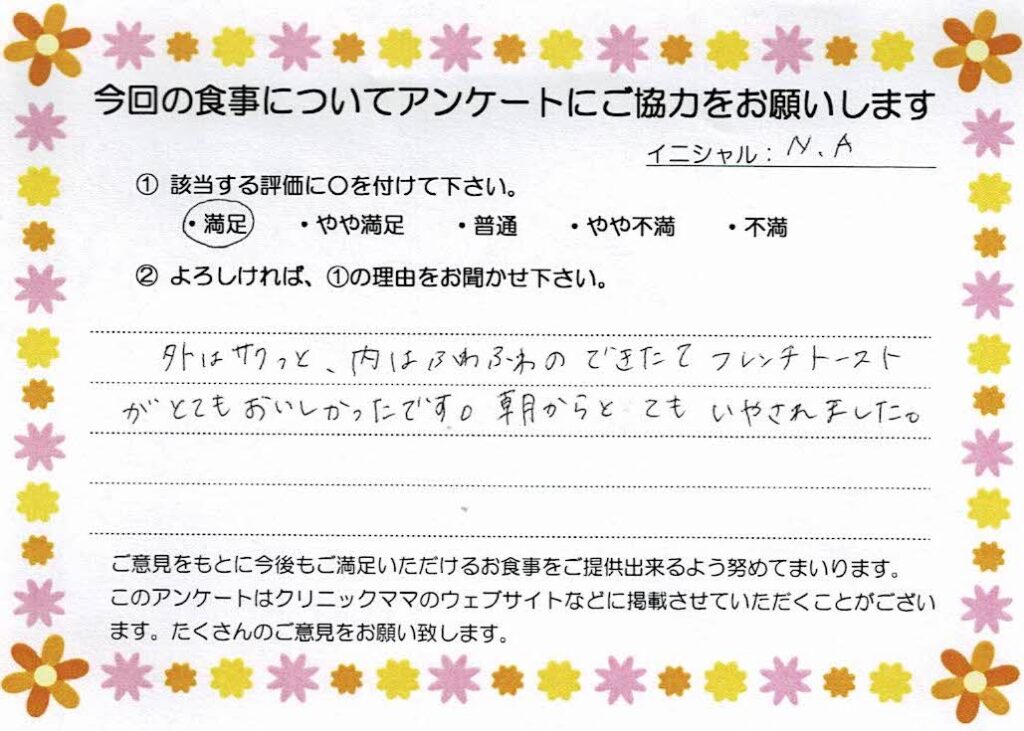 今回の食事についてアンケートにご協力をお願いします
イニシャル： N.A
① 該当する評価に○を付けて下さい。
・満足 ・やや満足 ・普通 ・やや不満 ・不満
② よろしければ、①の理由をお聞かせ下さい。
外はサクっと、内はふわふわのできたてフレンチトースト
がとてもおいしかったです。朝からとてもいやされました。
ご意見をもとに今後もご満足いただけるお食事をご提供出来るよう努めてまいります。
このアンケートはクリニックママのウェブサイトなどに掲載させていただくことがござい
ます。たくさんのご意見をお願い致します。